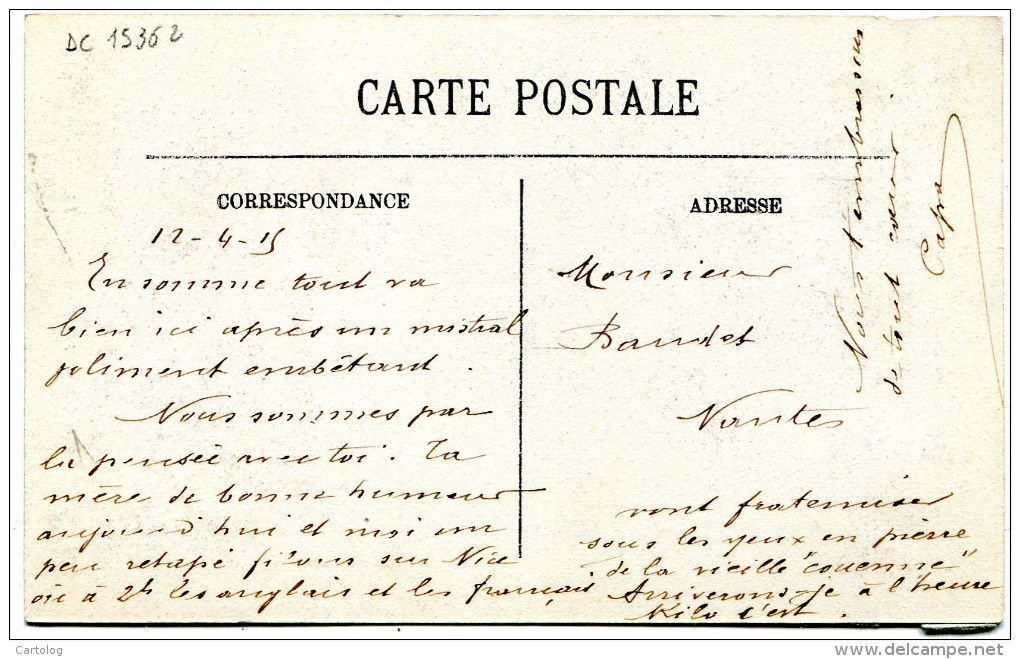 DC 15362
CARTE POSTALE
CORRESPONDANCE
12-4-15
En somme tout va
bien ici après un mistral
joliment embêtant.
Nous sommes par
la pensée avec toi. Ta
mère de bonne humeur
aujourd'hui et moi un
peu retapé filons sur Nice
où à 2h les anglais et les français
ADRESSE
Monsieur
Baudet
Nantes
vont fraterniser
sous les yeux en pierre
de la vieille "couenne"
Arriverons-je à l'heure
Kilo c'est.
Nous t'embrassons
de tout cœur
Cartolog
www.delcampe.net